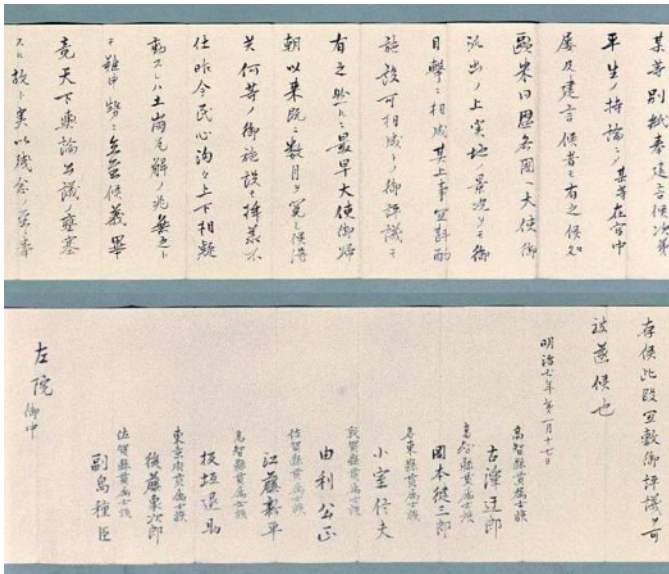 某等別紙奉建言候次第
平生ノ持論ニシテ某等在官中
屡及建言候者モ有之候処
欧米同盟各國ヘ大使御
派出ノ上実地ノ景況ヲモ御
目撃ニ相成其上事宜斟酌
施設可相成トノ御評議モ
有之然ルニ最早大使御帰
朝以来既ニ数月ヲ閲シ候得
共何等ノ御施設モ拝承不
仕昨今民心洶々上下相疑
動スレハ土崩瓦解ノ兆無之ト
モ難申勢ニ立至候義畢
竟天下輿論公議ノ壅塞
スル故ト実以残念ノ至ニ奉
存候此段宜敷御評議ヲ可
被遂候也
明治七年第一月十七日
高智縣貫属士族
古澤迂郎
高智縣貫属士族
岡本健三郎
名東縣貫属士族
小室信夫
敦賀縣貫属士族
由利公正
佐賀縣貫属士族
江藤新平
高智縣貫属士族
板垣退助
東京府貫属士族
後藤象次郎
佐賀縣貫属士族
副島種臣
左院 御中